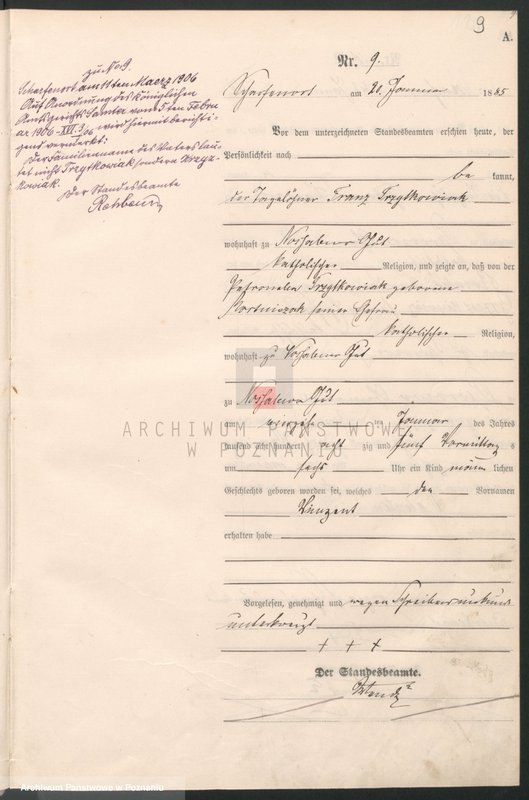 9
A.
Nr. 9.
Scharfenort am 20. Januar 1885
Vor dem unterzeichneten Standesbeamten erschien heute, der
Persönlichkeit nach
be kannt,
der Tagelöhner Franz Trzytkowiak
wohnhaft zu Gut
katholischer Religion, und zeigte an, daß von der
Petronela Trzytkowiak geborene
seiner Ehefrau
katholischer Religion,
wohnhaft zu Gut
zu Gut
am ten Januar des Jahres
tausend acht hundert acht zig und fünf Vormittags
um sechs Uhr ein Kind männ lichen
Geschlechts geboren worden sei, welches den Vornamen
Vinzent
erhalten habe
Vorgelesen, genehmigt und wegen Schreibensunkunde
unterkreuzt
+ + +
Der Standesbeamte.
zu No 9.
Scharfenort am 11ten Maerz 1906
Auf Anordnung des königlichen
Amtsgerichts Samter vom 5ten Febru
ar 1906 - XIII. wird hiermit berichti-
gend vermerkt:
Der Familienname des Vaters lau-
tet nicht Trzytkowiak sondern Krzyz-
kowiak.
Der Standesbeamte
Rehbein
ARCHIWUM PAŃSTWOWE
W POZNANIU
Archiwum Państwowe w Poznaniu